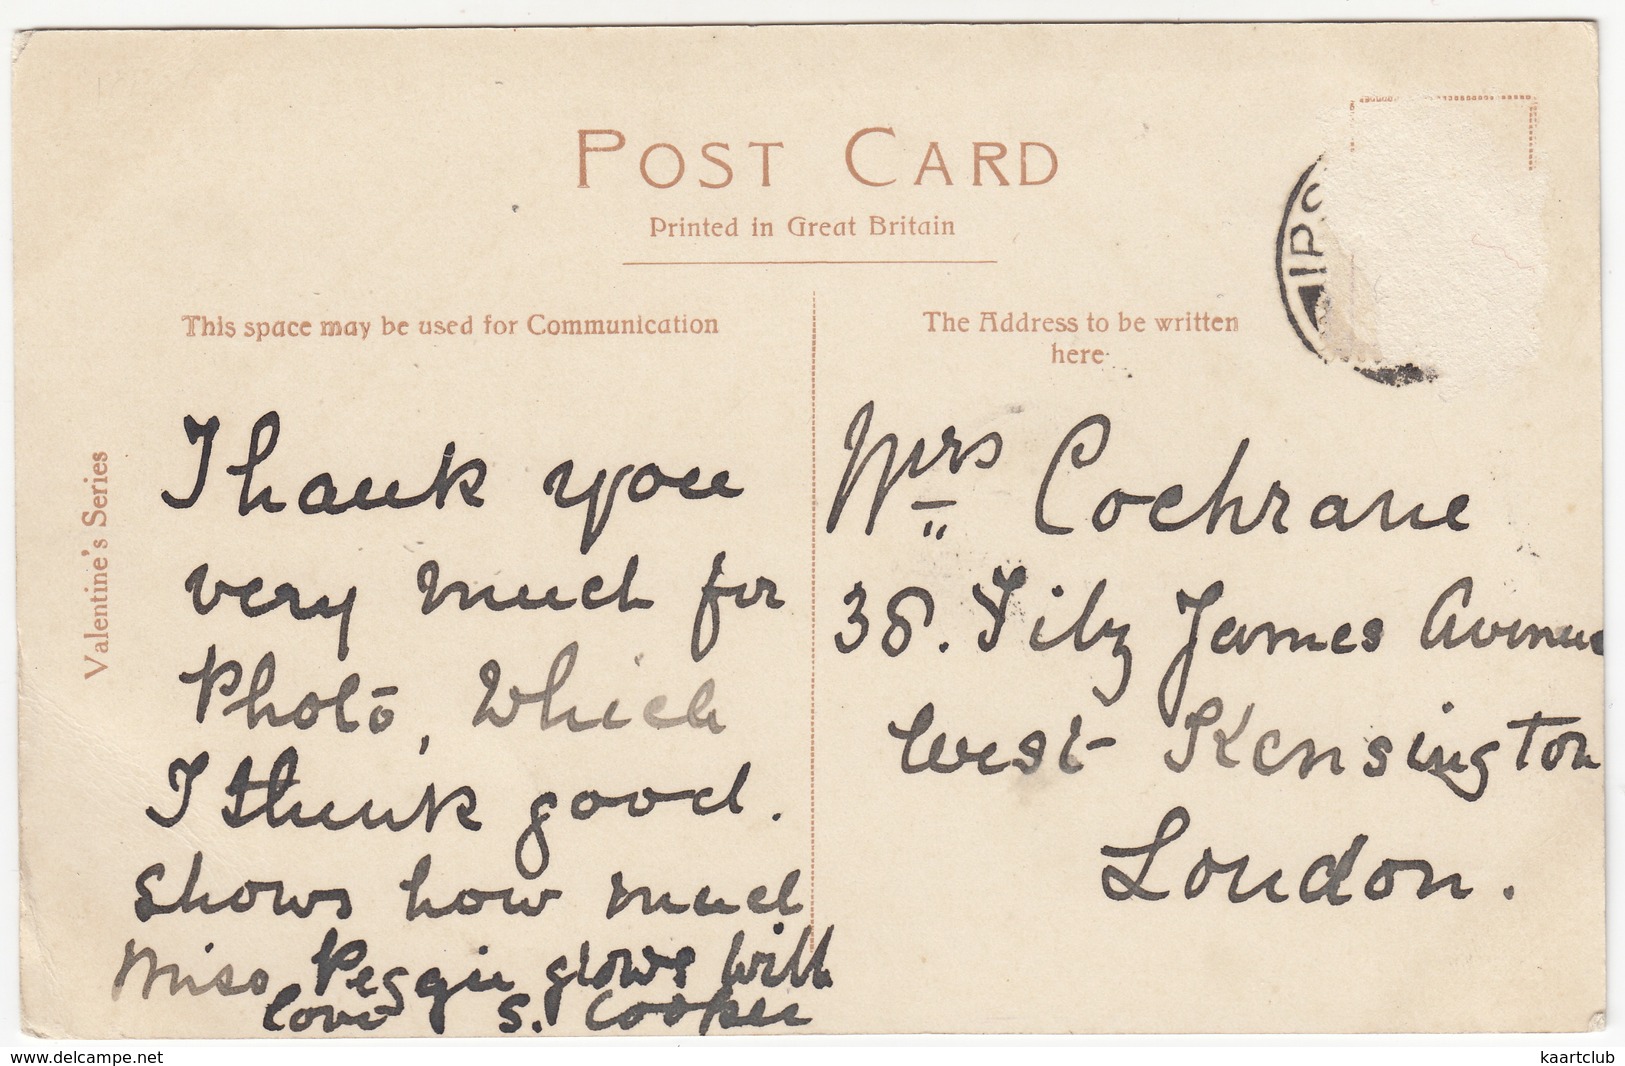 POST CARD
Printed in Great Britain
This space may be used for Communication
The Address to be written
here
Valentine's Series
IPS
Thank you
very much for
Photo, which
I think good.
Shows how much
Miss Peggie glows with
love S. Cooper
Mrs Cochrane
38. Fitz James Avenue
West Kensington
London.
www.delcampe.net
kaartclub